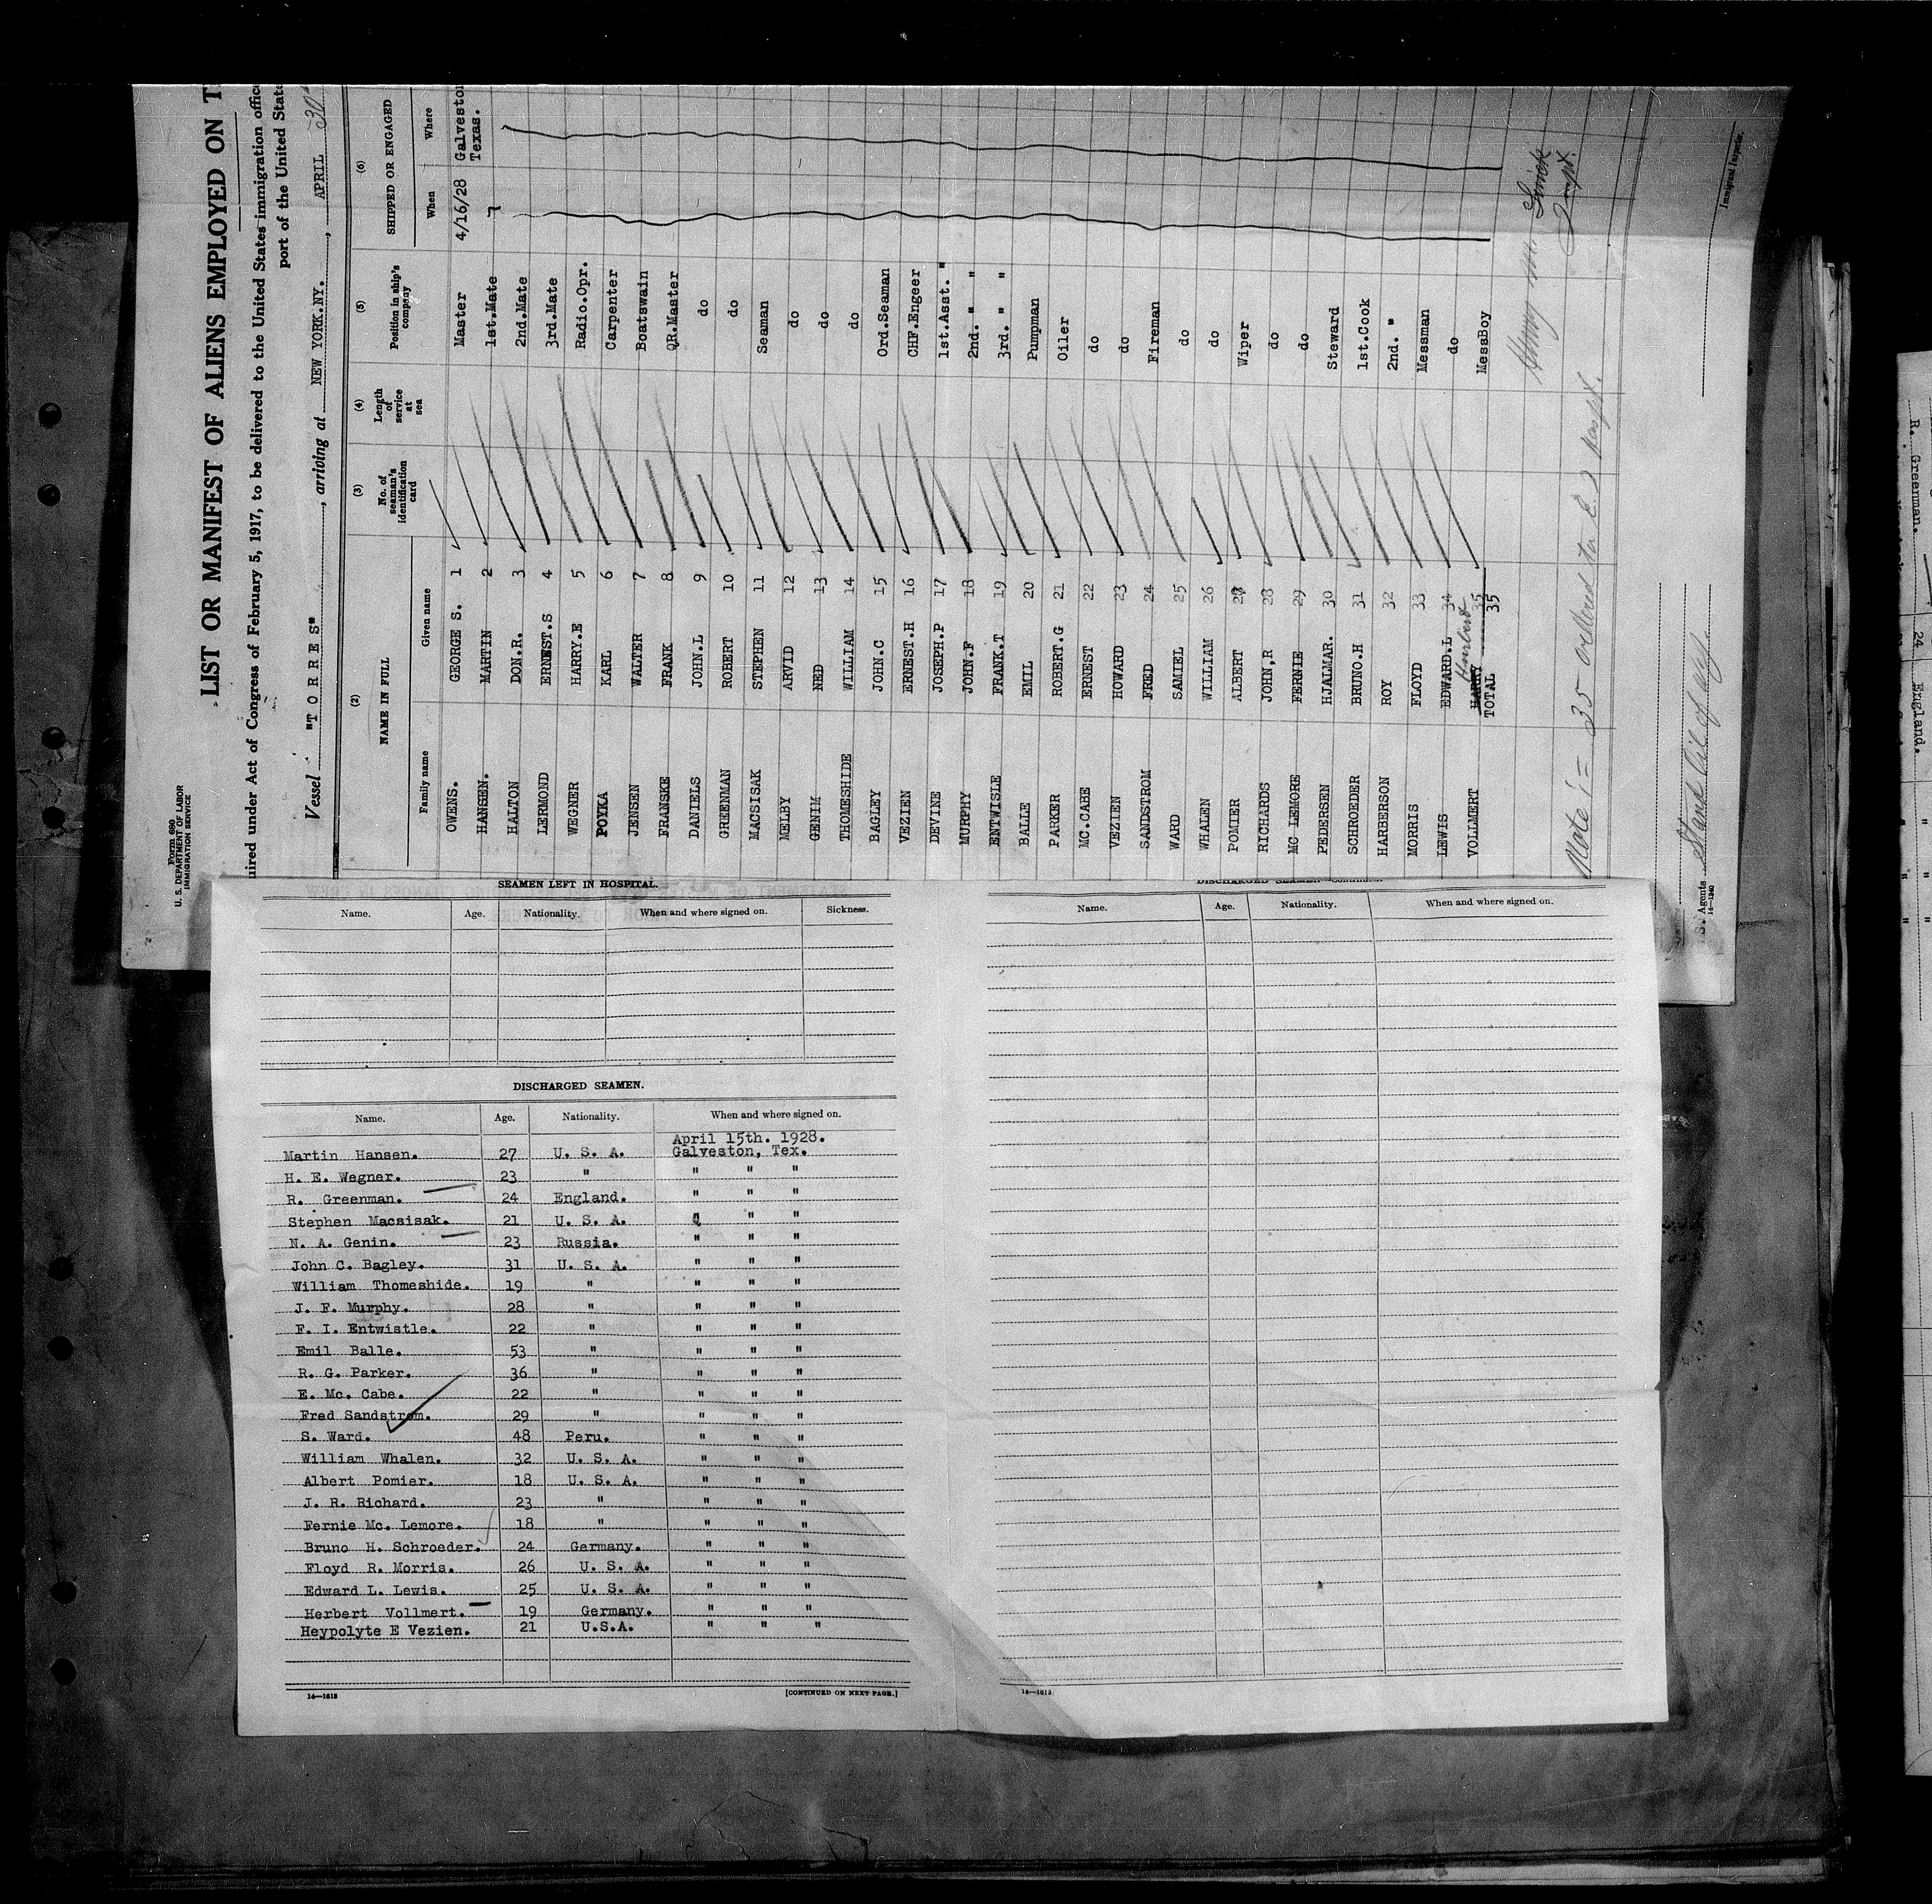 Form 680
U. S. DEPARTMENT OF LABOR
IMMIGRATION SERVICE
LIST OR MANIFEST OF ALIENS EMPLOYED ON T
uired under Act of Congress of February 5, 1917, to be delivered to the United States immigration offic
port of the United State
Vessel "TORRES", arriving at NEW YORK.NY., APRIL 30
(2) (3) (4) (5) (6)
NAME IN FULL No. of seaman's identification card Length of service at sea Position in ship's company SHIPPED OR ENGAGED
Family name Given name When Where
OWENS. GEORGE S. 1 Master 4/16/28 Galveston Texas.
HANSEN. MARTIN 2 1st.Mate
HALTON DON.R. 3 2nd.Mate
LERMOND ERNEST.S 4 3rd.Mate
WEGNER HARRY.E 5 Radio.Opr.
POYKA KARL 6 Carpenter
JENSEN WALTER 7 Boatswain
FRANSKE FRANK 8 QR.Master
DANIELS JOHN.L 9 do
GREENMAN ROBERT 10 do
MACSISAK STEPHEN 11 Seaman
MELBY ARVID 12 do
GENIM NED 13 do
THOMESHIDE WILLIAM 14 do
BAGLEY JOHN.C 15 Ord.Seaman
VEZIEN ERNEST.H 16 CHF.Engeer
DEVINE JOSEPH.P 17 1st.Asst. "
MURPHY JOHN.F 18 2nd. " "
ENTWISLE FRANK.T 19 3rd. " "
BALLE EMIL 20 Pumpman
PARKER ROBERT.G 21 Oiler
MC.CABE ERNEST 22 do
VEZIEN HOWARD 23 do
SANDSTROM FRED 24 Fireman
WARD SAMIEL 25 do
WHALEN WILLIAM 26 do
POMIER ALBERT 27 Wiper
RICHARDS JOHN,R 28 do
MC LEMORE FERNIE 29 do
PEDERSEN HJALMAR. 30 Steward
SCHROEDER BRUNO.H 31 1st.Cook
HARBERSON ROY 32 2nd. "
MORRIS FLOYD 33 Messman
LEWIS EDWARD.L 34 do
VOLLMERT HARRY Herbert 35 MessBoy
TOTAL 35
Note:= 35 ordered to
S. Agents Stand Oil of
14-1240
Immigrant Inspector.
SEAMEN LEFT IN HOSPITAL.
Name. Age. Nationality. When and where signed on. Sickness.
DISCHARGED SEAMEN.
Name. Age. Nationality. When and where signed on.
April 15th. 1928.
Martin Hansen. 27 U. S. A. Galveston, Tex.
H. E. Wegner. 23 " " " "
R. Greenman. 24 England. " " "
Stephen Macsisak. 21 U. S. A. " " "
N. A. Genin. 23 Russia. " " "
John C. Bagley. 31 U. S. A. " " "
William Thomeshide. 19 " " " "
J. F. Murphy. 28 " " " "
F. I. Entwistle. 22 " " " "
Emil Balle. 53 " " " "
R. G. Parker. 36 " " " "
E. Mc. Cabe. 22 " " " "
Fred Sandstrom. 29 " " " "
S. Ward. 48 Peru. " " "
William Whalen. 32 U. S. A. " " "
Albert Pomier. 18 U. S. A. " " "
J. R. Richard. 23 " " " "
Fernie Mc. Lemore. 18 " " " "
Bruno H. Schroeder. 24 Germany. " " "
Floyd R. Morris. 26 U. S. A. " " "
Edward L. Lewis. 25 U. S. A. " " "
Herbert Vollmert. 19 Germany. " " "
Heypolyte E Vezien. 21 U.S.A. " " "
14-1613 [CONTINUED ON NEXT PAGE.]
DISCHARGED SEAMEN
Name. Age. Nationality. When and where signed on.
14-1613
R. Greenman. 24 England.